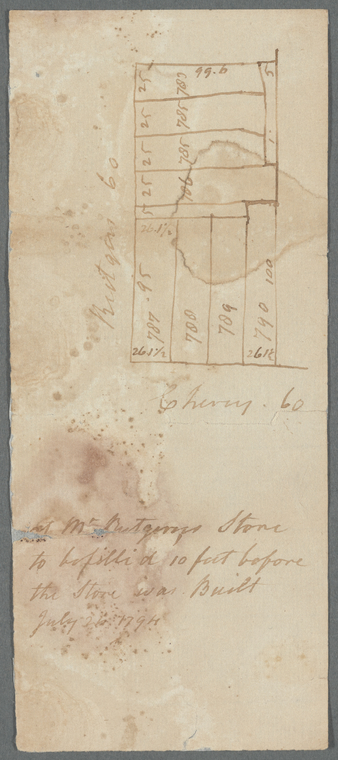 99.6
5
25
25
25
25
5
785
26.1½
Rutgers 60
95
100
787
788
789
790
26 1½
26 1½
Cherry. 60
at Mr. Rutgers Store
to be filld 10 feet before
the Store was Built
July 1794